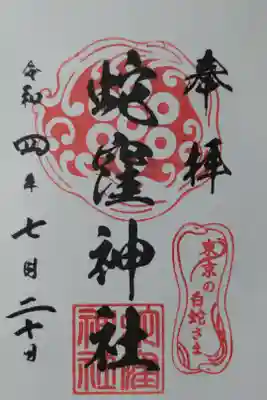 奉拝
蛇窪神社
令和四年七月二十日
東京の
白蛇さま
蛇窪
神社